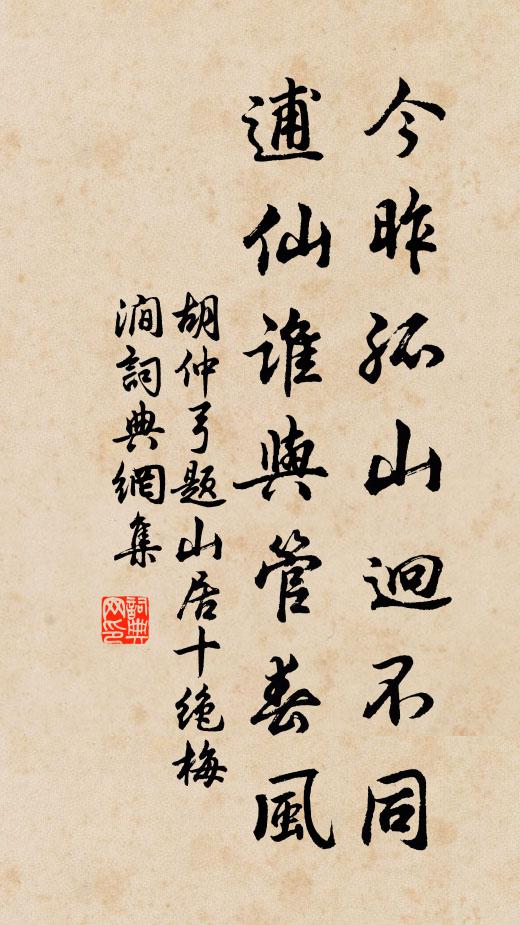 今昨孤山迥不同
逋仙谁與管春風
胡仲弓题山居十绝梅
澗詞典網集
詞典网印